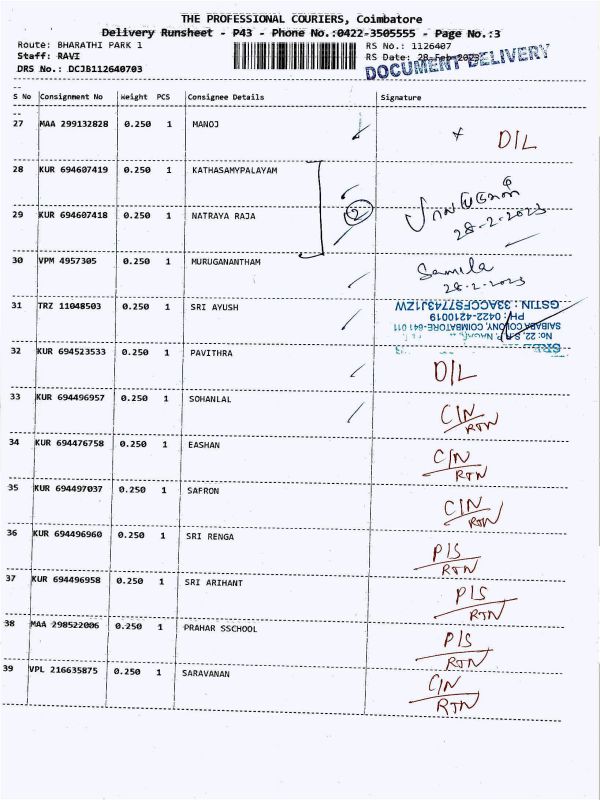 THE PROFESSIONAL COURIERS, Coimbatore
Delivery Runsheet - P43 - Phone No.:0422-3505555 - Page No.:3
Route: BHARATHI PARK 1 RS No.: 1126407
Staff: RAVI RS Date: 28-Feb-2023
DRS No.: DCJB112640703 DOCUMENT DELIVERY
S No Consignment No Weight PCS Consignee Details Signature
27 MAA 299132828 0.250 1 MANOJ D/L
28 KUR 694607419 0.250 1 KATHASAMYPALAYAM
2
28-2-2023
29 KUR 694607418 0.250 1 NATRAYA RAJA
30 VPM 4957305 0.250 1 MURUGANANTHAM
28-2-2023
31 TRZ 11048503 0.250 1 SRI AYUSH
No: 22, S.R.
SAIBABA COLONY, COIMBATORE-641 011
PH: 0422-4210019
GSTIN : 33ACCFS7743J1ZW
32 KUR 694523533 0.250 1 PAVITHRA D/L
33 KUR 694496957 0.250 1 SOHANLAL C/N
RTN
34 KUR 694476758 0.250 1 EASHAN C/N
RTN
35 KUR 694497037 0.250 1 SAFRON C/N
RTN
36 KUR 694496960 0.250 1 SRI RENGA P/S
RTN
37 KUR 694496958 0.250 1 SRI ARIHANT P/S
RTN
38 MAA 298522006 0.250 1 PRAHAR SSCHOOL P/S
RTN
39 VPL 216635875 0.250 1 SARAVANAN C/N
RTN